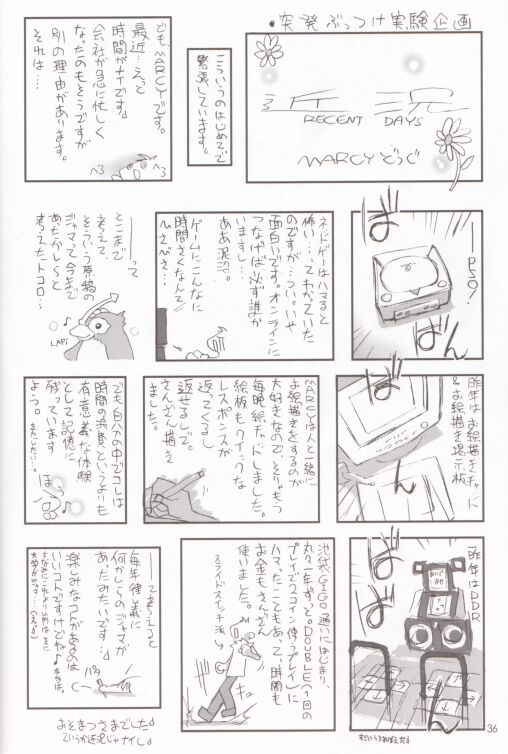 ・突発ぶっつけ実験企画
近況
RECENT DAYS
MARCYどうぐ
こういうのはじめてで
緊張しています。
ども、MARCYです。
最近…えっと
時間がナイです。
会社が急に忙しく
なったのもそうですが
別の理由があります。
それは…
ばばん
――PSO!
ネットゲーはハマると
怖い…ってわかっていた
のですが…つい…いや
面白いです。オンラインに
つなげば必ず誰か
いますし…
ああ泥沼。
ゲームにこんなに
時間さくなんて
――って
とこまで
考えて
そういう原稿の
ジャマで今まで
あたかしらと
考えたトコロ…
LAPi
♪
ばばん
昨年はお絵描きチャット
&お絵描き掲示板
MARCYは人と一緒に
お絵描きをするのが
大好きなので、そりゃもう
毎晩絵チャットしました。
絵板もクイックな
レスポンスが
返ってくるし
返せるしで。
さんざん描き
ました。
でも自分の中でコレは
時間の浪費というよりも
有意義な体験
として記憶に
残っています
よう。
またしたい…。
ほう
ばばん
一昨年はDDR
池袋GIGO通いにはじまり、
丸々一年ずっと。DOUBLE(1回の
プレイで2コイン使うプレイ)に
ハマったこともあって時間も
お金もさんざん
使いました。
スライドスイッチ派
キュ
――て考えると
毎年律義に
何かしらのジャマが
あったみたいです…♪
楽しみなコトがあるのは
いいコトですけどね♪
本当は。
ちなみにこれより以前はまに
大学がジャマ…(えぇ)
パタ
おそまつさまでした♪
ていうか近況じゃナイし♪
36